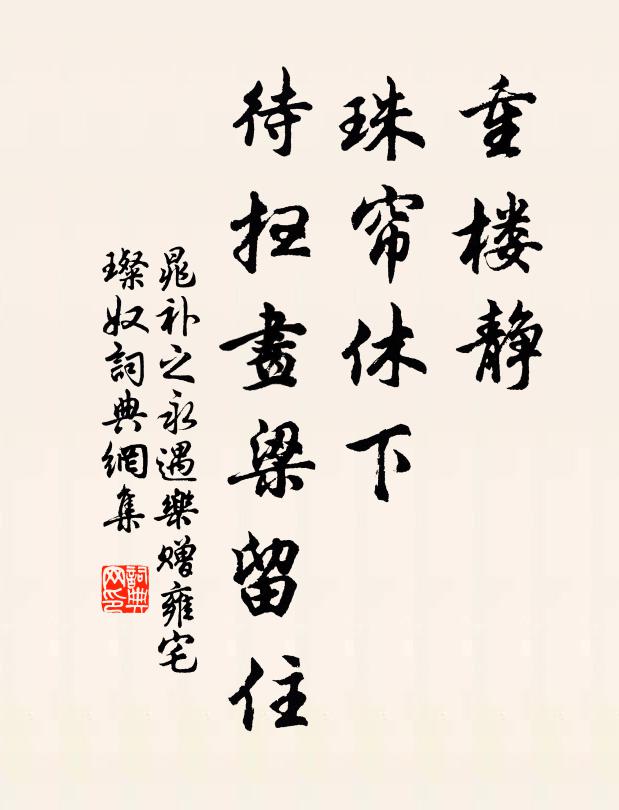 重楼静
珠帘休下
待扫畫梁留住
晁补之永遇樂赠雍宅
璨奴詞典網集
詞典网印